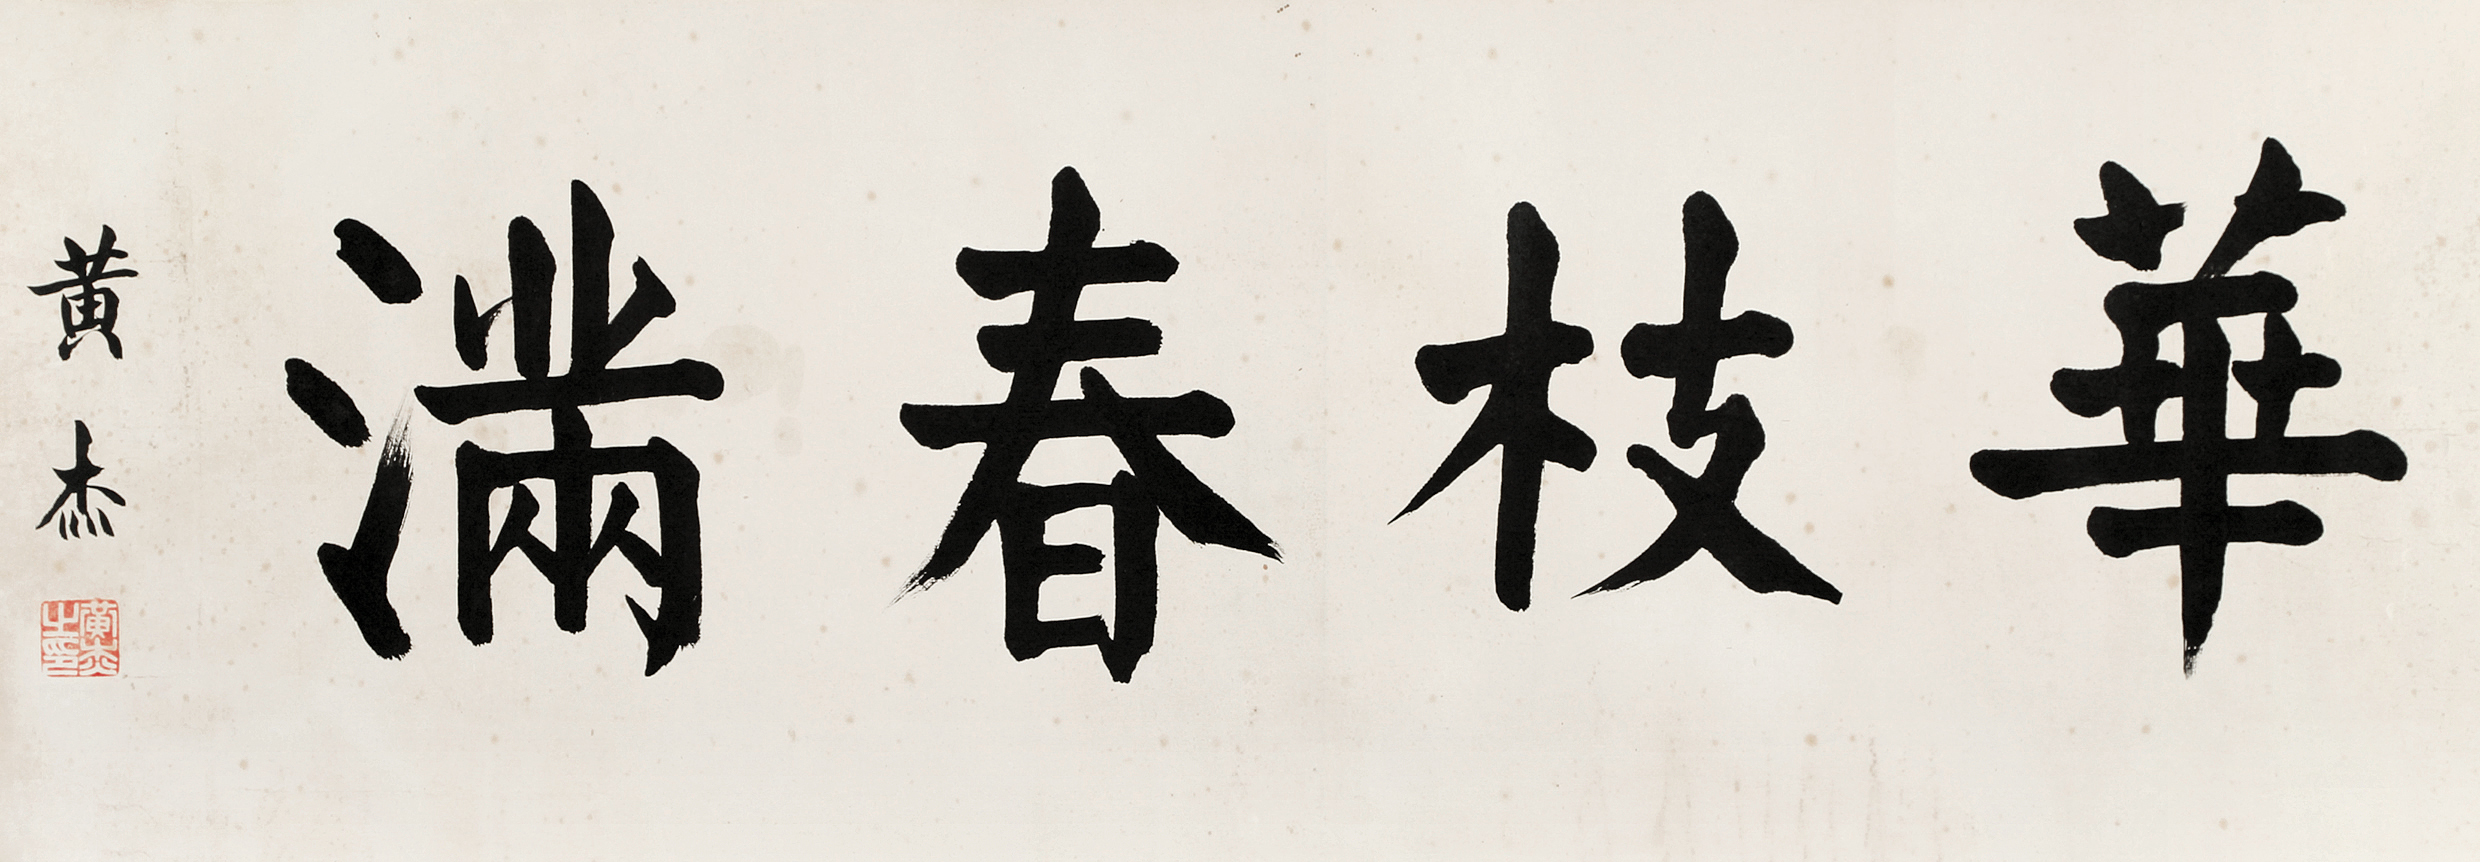 華枝春滿
黃杰
黃杰之印